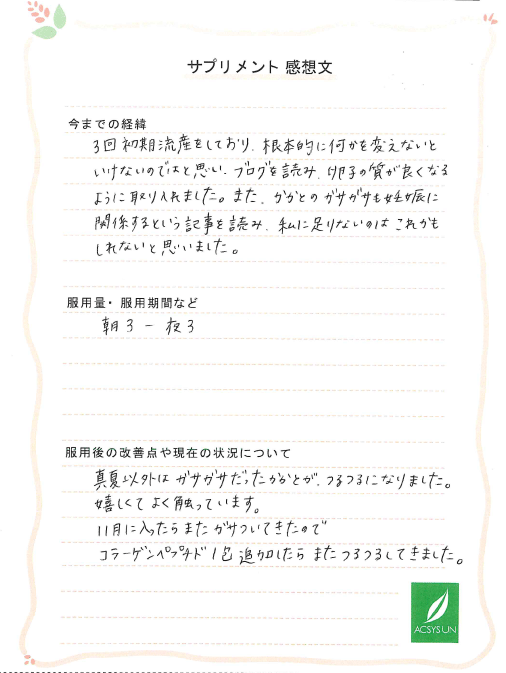 サプリメント 感想文
今までの経緯
3回初期流産をしており、根本的に何かを変えないと
いけないのではと思い、ブログを読み、卵子の質が良くなる
ように取り入れました。また、かかとのガサガサも妊娠に
関係するという記事を読み、私に足りないのはこれかも
しれないと思いました。
服用量・服用期間など
朝3 ー 夜3
服用後の改善点や現在の状況について
真夏以外はガサガサだったかかとが、つるつるになりました。
嬉しくてよく触っています。
11月に入ったらまたガサついてきたので
コラーゲンペプチド1包追加したらまたつるつるしてきました。
ACSYSUN